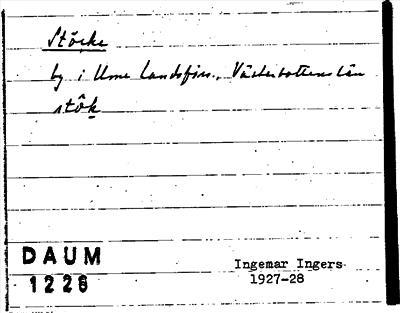 Stöcke
by i Ume landsförs., Västerbottens län
stö̂k
DAUM
1226
Ingemar Ingers
1927-28